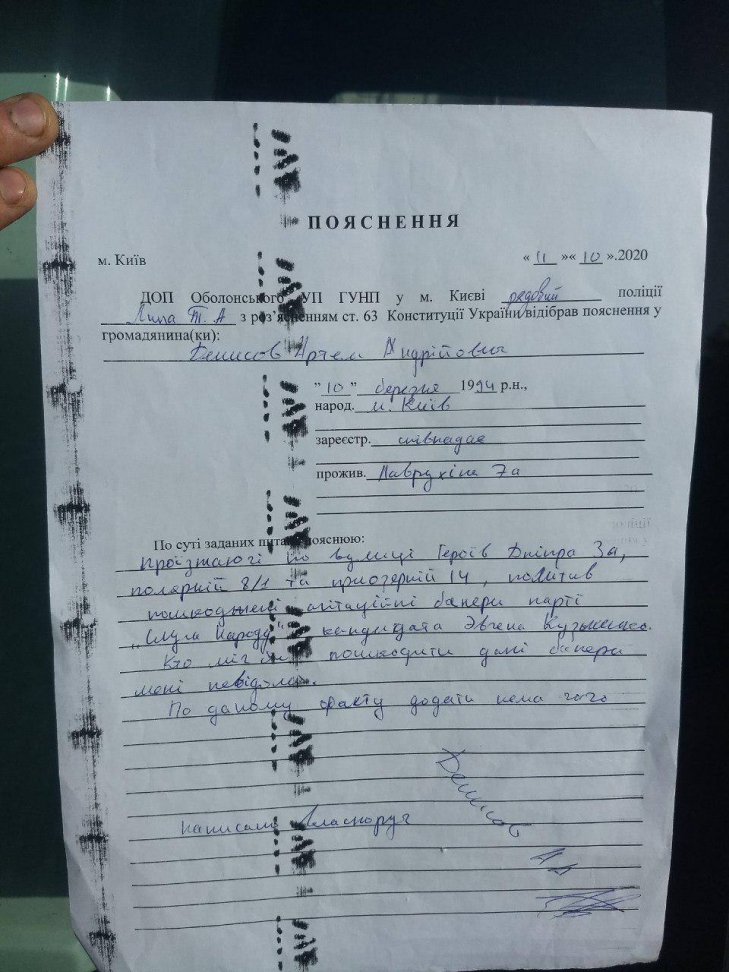 ПОЯСНЕННЯ
м. Київ « 11 »« 10 ».2020
ДОП Оболонського УП ГУНП у м. Києві рядовий поліції
Липа Т. А з роз'ясненням ст. 63 Конституції України відібрав пояснення у
громадянина(ки):
Денисов Артем Андрійович
"10" березня 1994 р.н.,
народ. м. Київ
зареєстр. співпадає
прожив. Лаврухіна 7а
По суті заданих питань пояснюю:
Проїзжаючі по вулиці Героїв Дніпра 3а,
полярній 8/1 та приозерній 14, помітив
пошкоджені агітаційні банери парті
"Слуга Народу" кандидата Эвгена Кузьменко.
Кто міг пошкодити дані банери
мені невідомо.
По даному факту додати нема чого
Денисов
написано власноруч